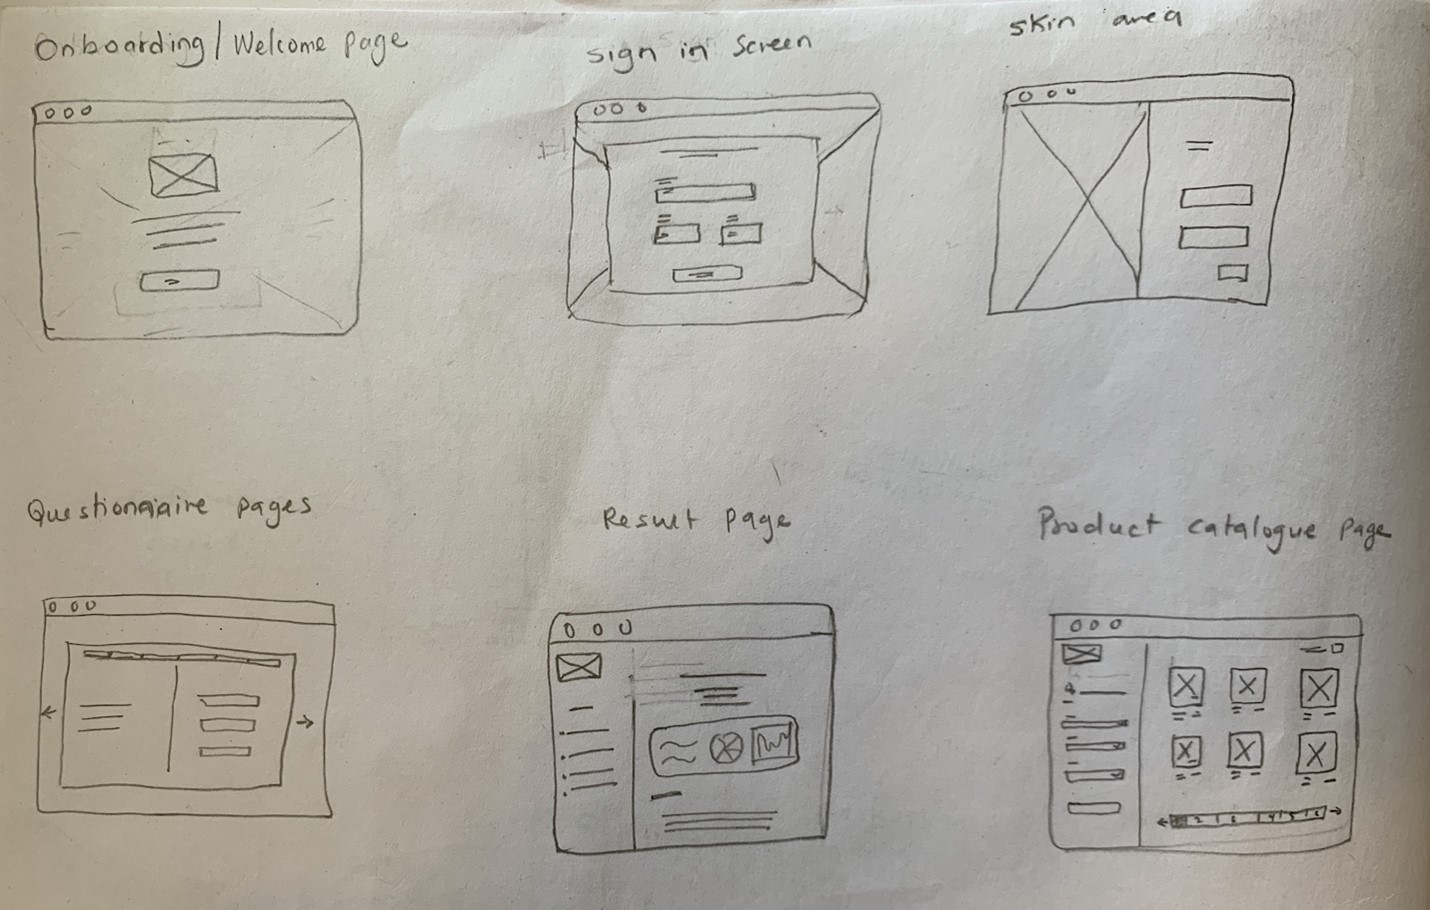 Onboarding/Welcome page
Sign in Screen
Skin area
Questionnaire pages
Result page
Product catalogue page